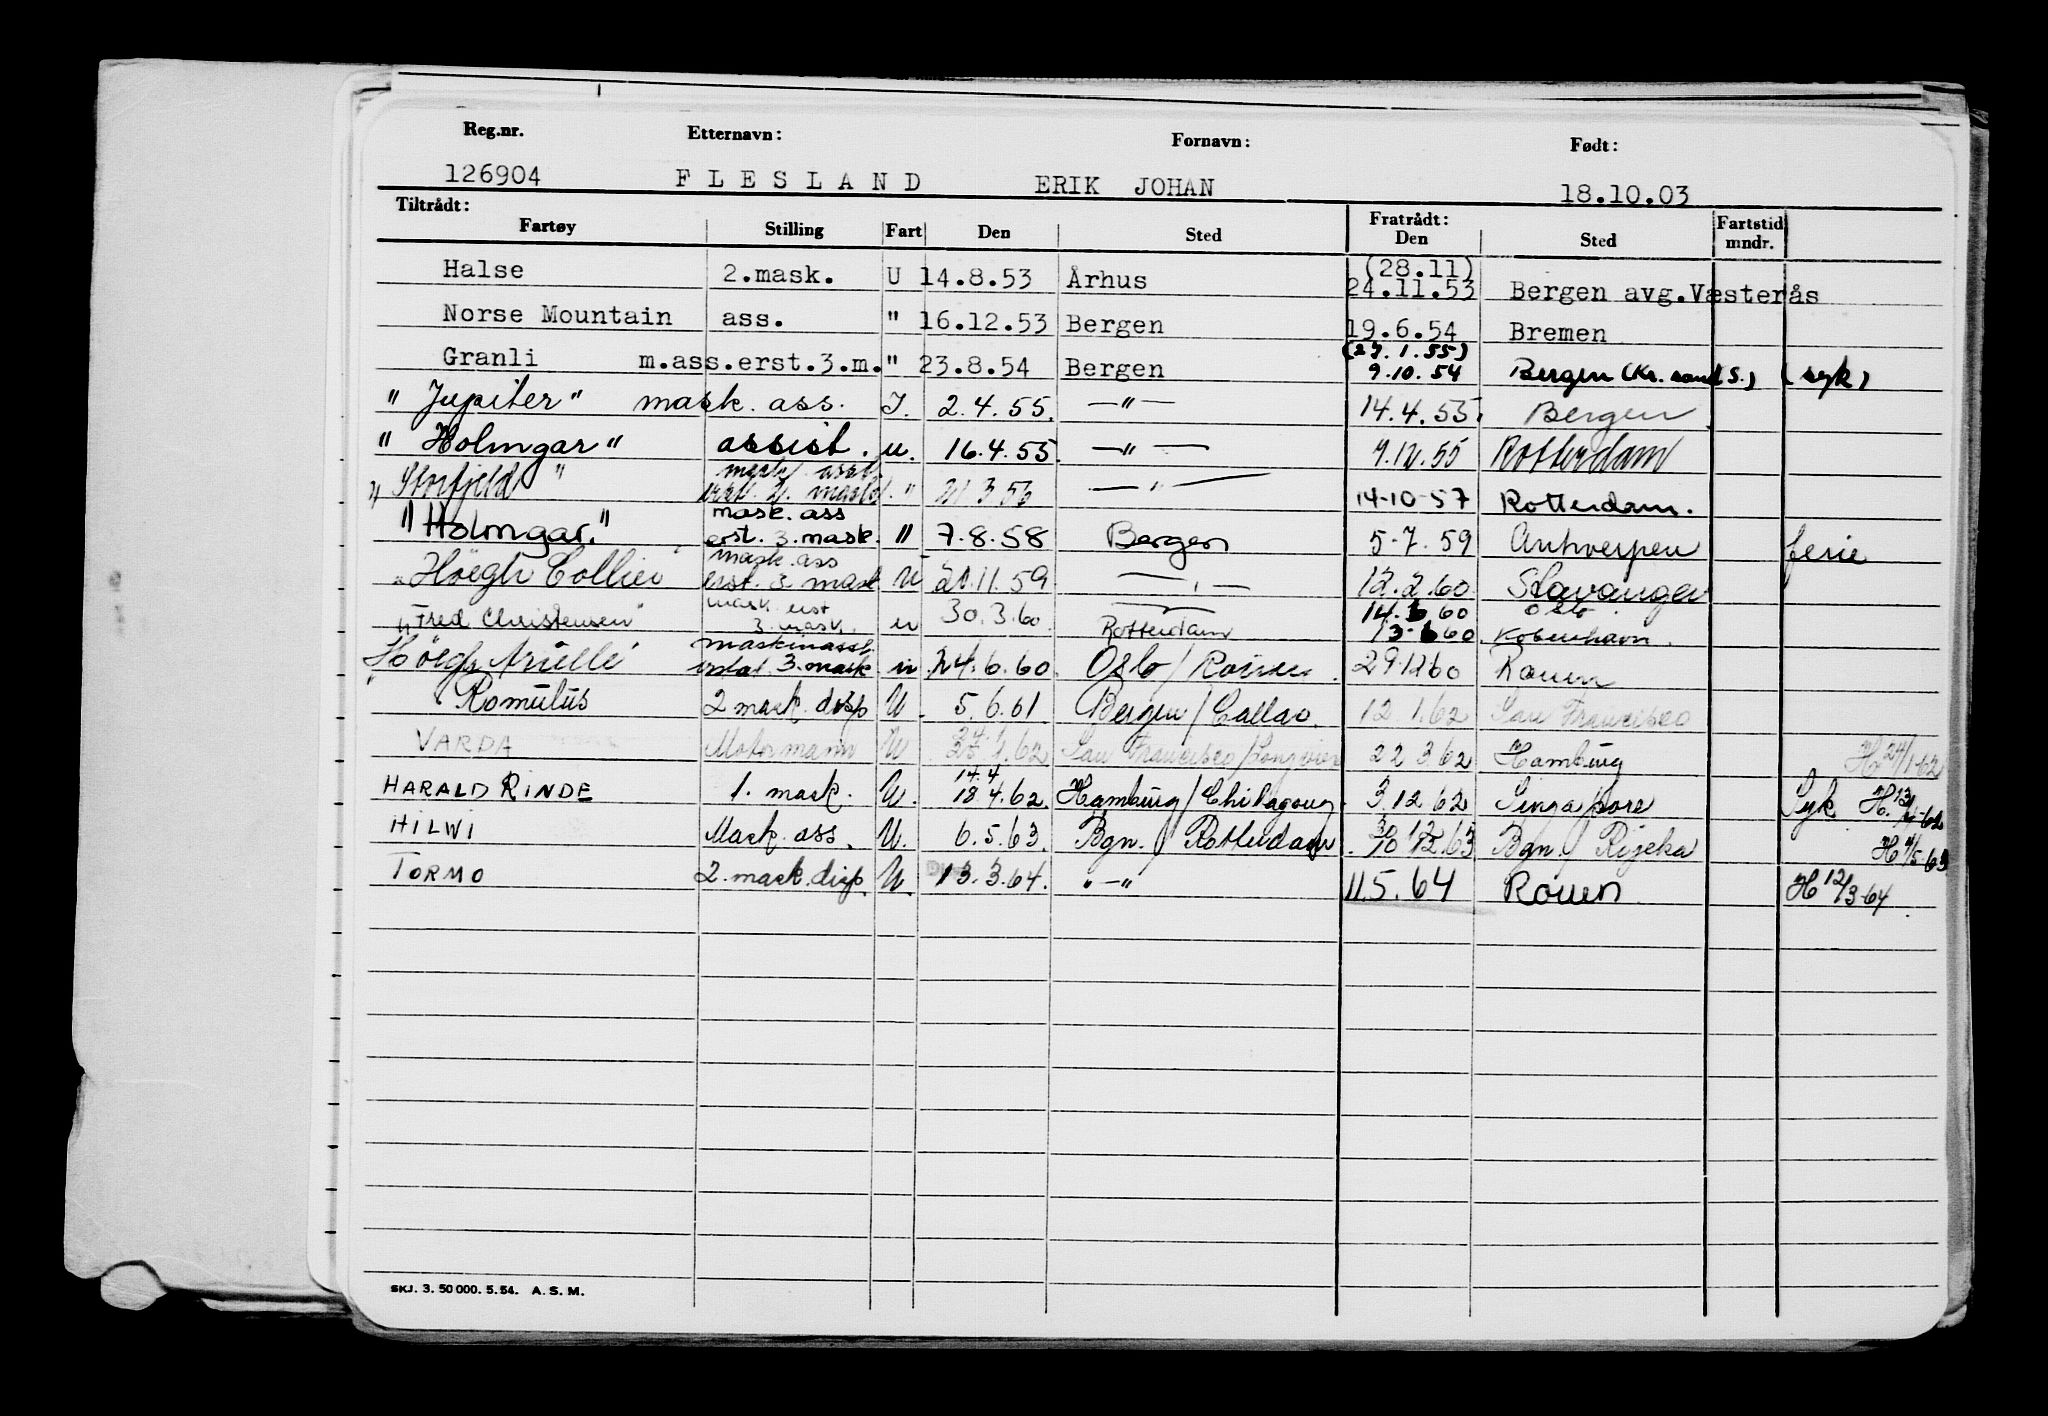 Reg.nr. Etternavn: Fornavn: Født:
126904 FLESLAND ERIK JOHAN 18.10.03
Tiltrådt: Fratrådt: Fartstid
Fartøy Stilling Fart Den Sted Den Sted mndr.
(28.11)
Halse 2.mask. U 14.8.53 Århus 24.11.53 Bergen avg.Væsterås
Norse Mountain ass. " 16.12.53 Bergen 19.6.54 Bremen
(27.1.55)
Granli m.ass.erst.3.m. " 23.8.54 Bergen 9.10.54 Bergen (Kr. sand S.) (syk)
" Jupiter " mask. ass. I. 2.4.55. —"— 14.4.55. Bergen
" Holmgar " assist. u. 16.4.55. —"— 9.12.55 Rotterdam
mask. asst.
" Storfjeld " erst. 2. mask. " 21 3 56 —"— 14-10-57 Rotterdam.
mask. ass
" Holmgar. " erst. 3. mask. " 7.8.58 Bergen 5-7.59 Antwerpen ferie
mask. ass
" Höegh Collier erst. 3 mask U 21.11.59 —"— 12.2.60 Stavanger
mask. erst 14.6.60 Oslo
" Fred Christensen " 3. mask. u 30.3.60 Rotterdam 13.6.60 København.
maskinasst.
Höegh erstat. 3. mask. u 24.6.60. Oslo / Rouen 29.12.60 Rouen
Romulus 2 mask. disp U. 5.6.61 Bergen / Callao. 12.1.62 San Francisco
VARDA Motormann U 25.1.62 San Francisco / Longview 22 3 62 Hamburg H 24/1-62
14.4
HARALD RINDE 1. mask. U. 18.4.62. Hamburg / 3.12.62 Singapore Syk H. 13/4-62
HILWI Mask. ass. U. 6.5.63. Bgn. / Rotterdam 10 12.63 Bgn. / Rijeka H 4/5-63
TORMO 2. mask. disp. U. 13.3.64. "—" 11.5.64 Rouen H 12/3-64
SKJ. 3. 50 000. 5. 54. A. S. M.